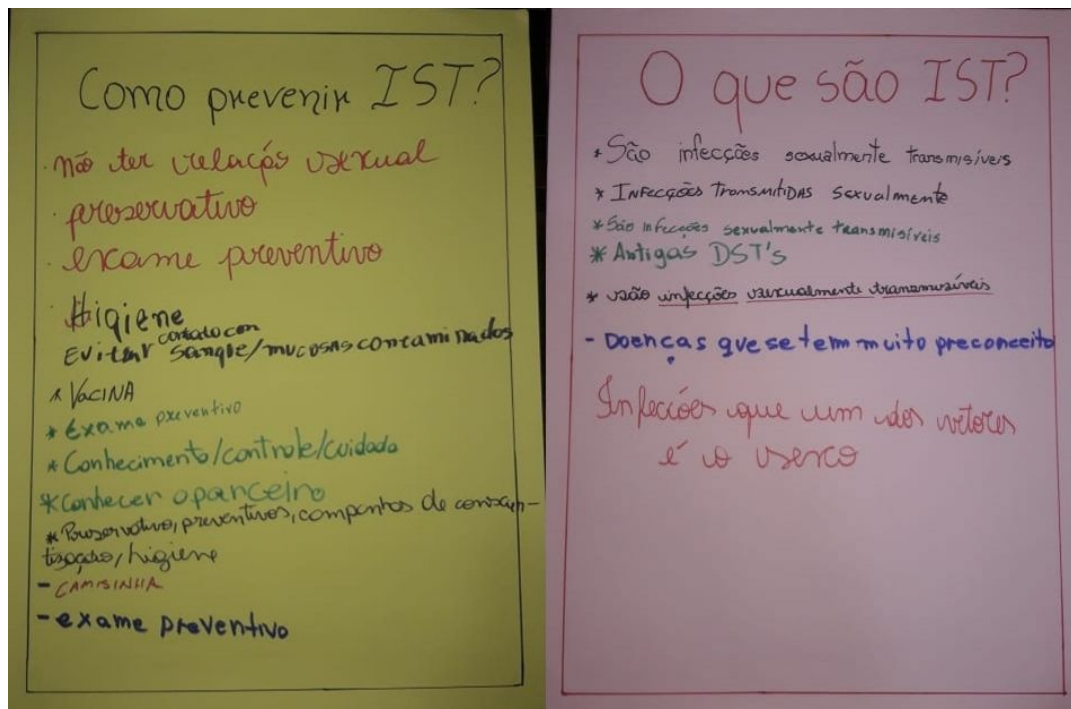 Como prevenir IST?
· Não ter relaçõs sexual
· preservativo
· exame preventivo
· Higiene
Evitar contato con sangue/mucosas contaminados
* VACINA
* Exame preventivo
* Conhecimento/controle/cuidado
* Conhecer o parceiro
* Preservativo, preventivos, companhas de conscien-
tização, higiene
- CAMISINHA
- exame preventivo
O que são IST?
* São infecções sexualmente transmisíveis
* INFECÇÕES TRANSMITIDAS sexualmente
* São infecções sexualmente transmisíveis
* Antigas DST's
* são infecções sexualmente transmissíveis
- Doenças que se tem muito preconceito
Infecções que um dos vetores
é o sexo